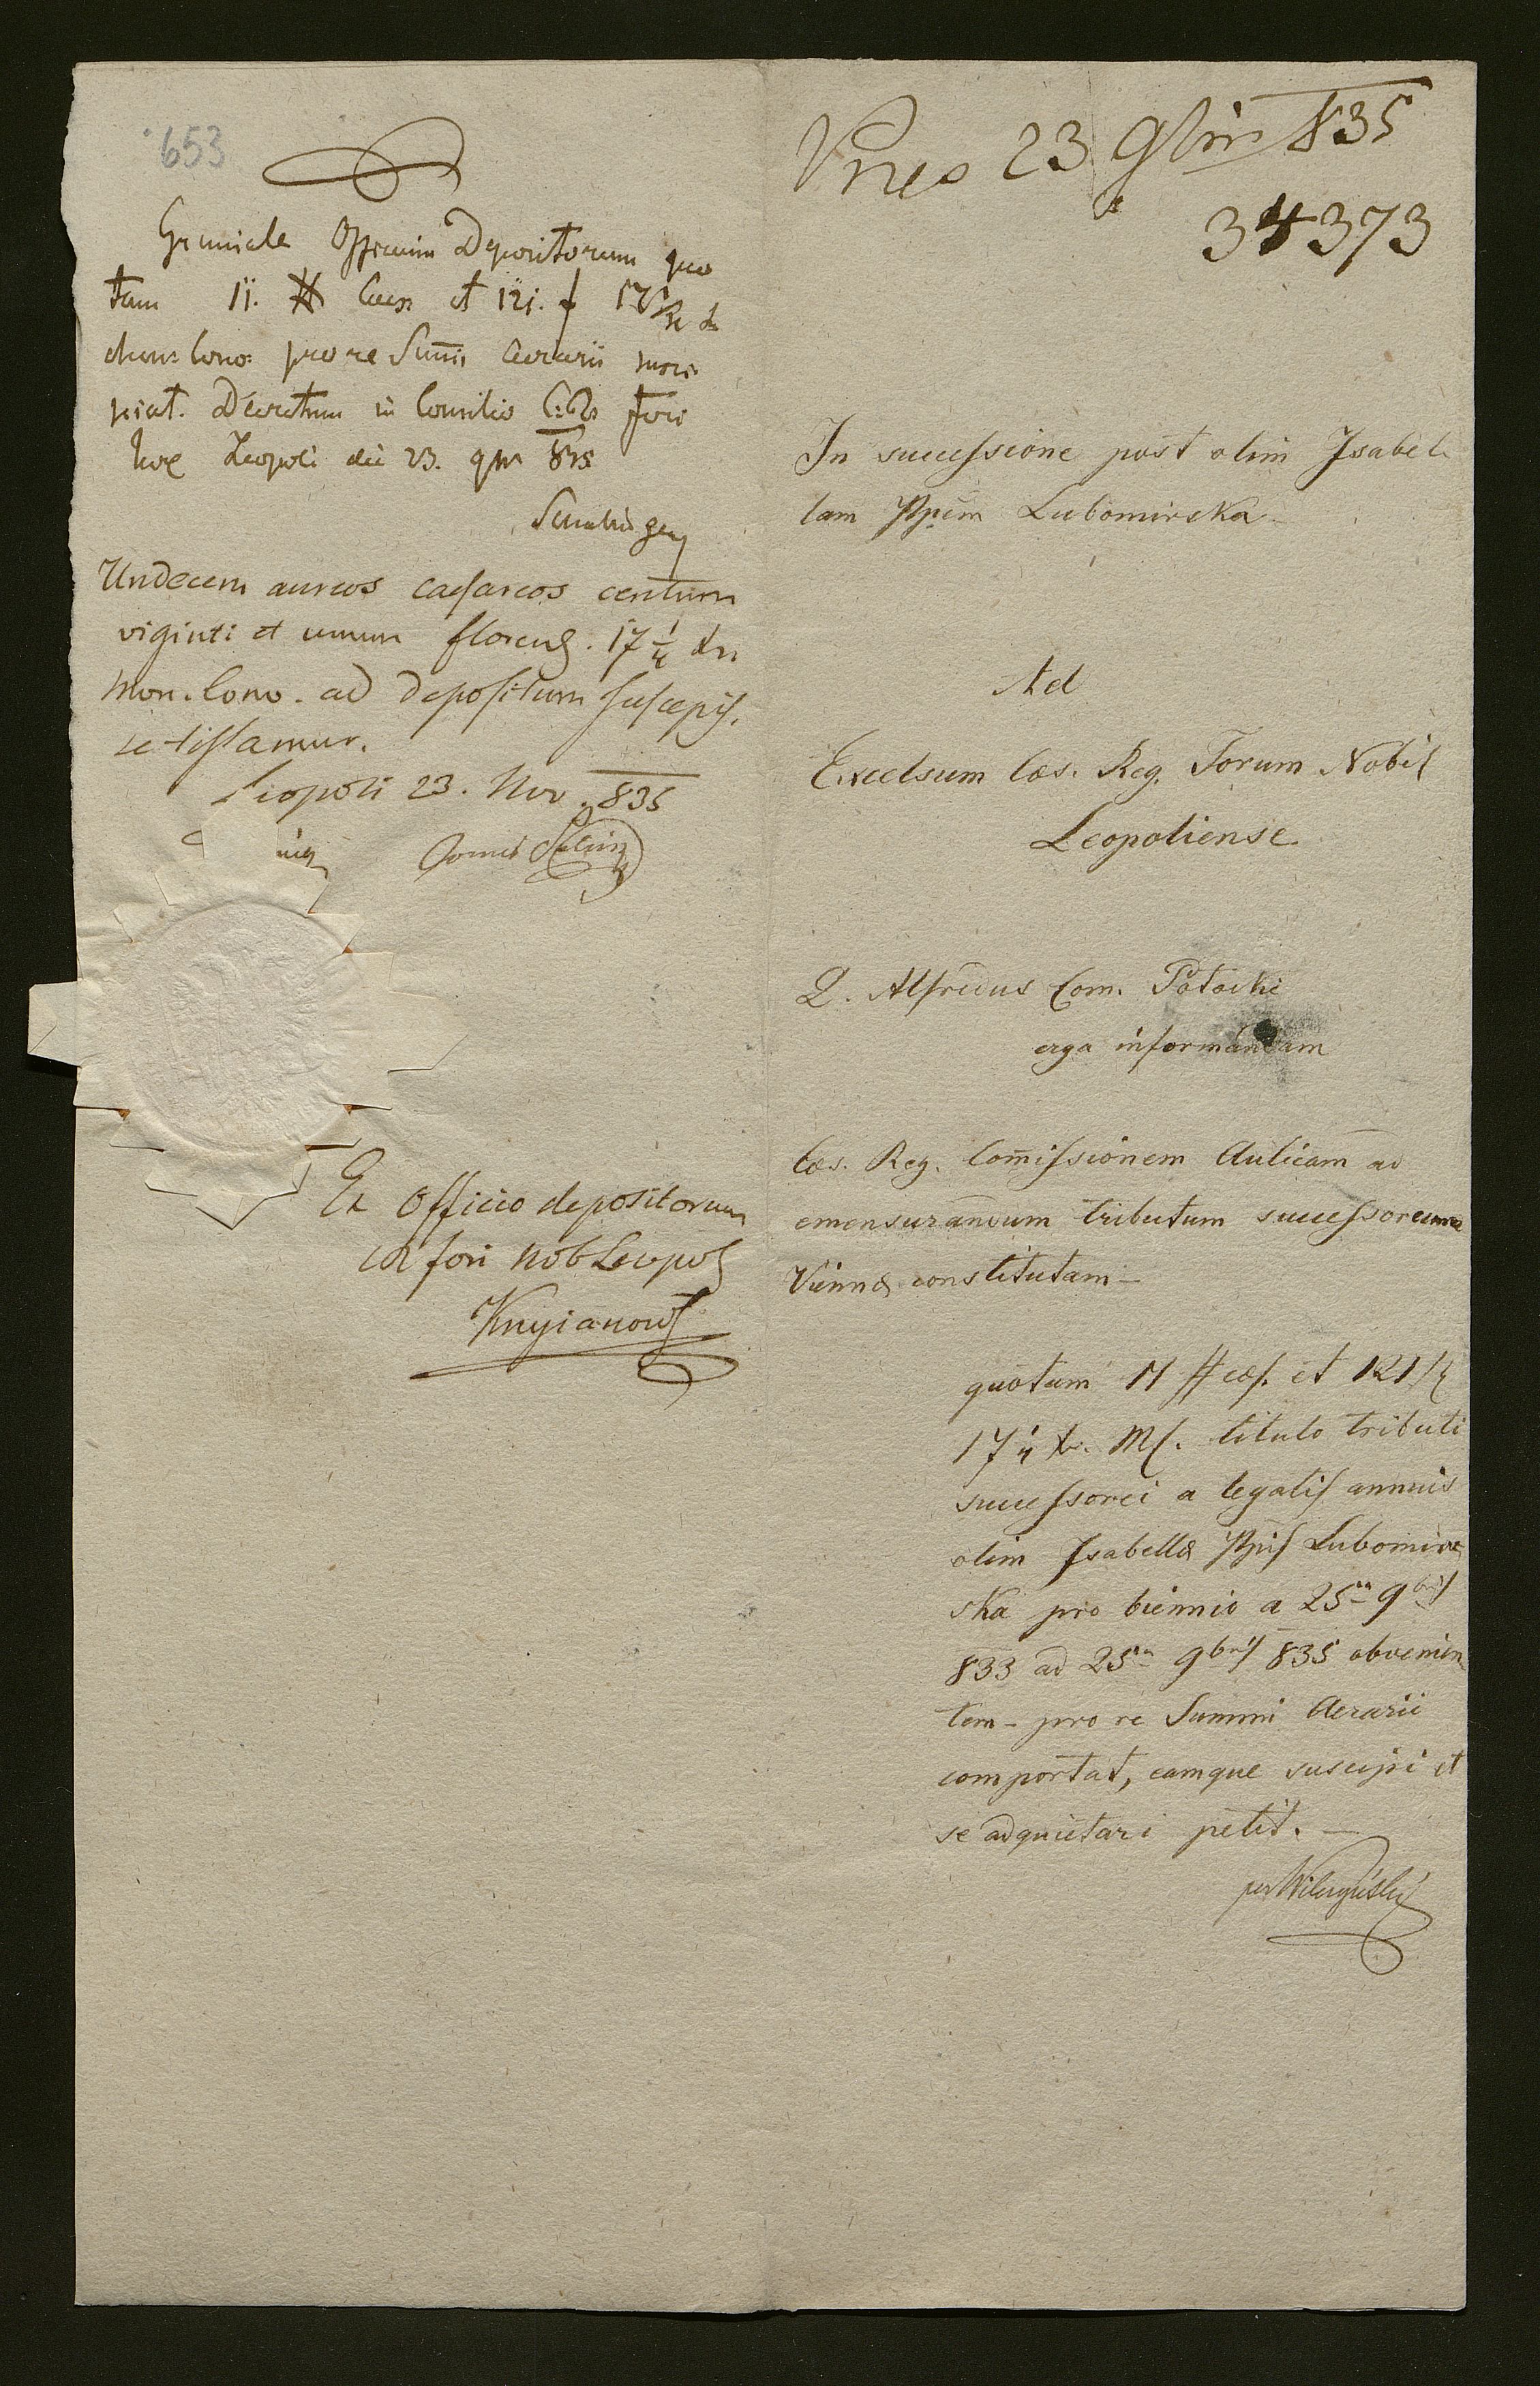 653
Gremiale Officium Depositorum quo
tam 11. # Caes et 121. f 17 1/4 xr
mon: Conv: pro re Summi Aerarii susci
piat. Decretum in Consilio C: R: Fori
Nob Leopoli die 23. 9br 835
Undecem aureos caesareos centum
viginti et unum floren. 17 1/4 xr
Mon. Conv. ad depositum suscepis,
se testamur.
Leopoli 23. Nov. 835
Ex Officio depositorum
CR fori Nob Leopol
Pnes 23 9bris 835
34373
In successione post olim Isabel
lam Ppem Lubomirska
Ad
Excelsum Cæs. Reg. Forum Nobil
Leopoliense
D. Alfredus Com. Potocki
erga informandam
Cæs. Reg. Com̄issionem Aulicam ad
emensurandum tributum successoreum
Viennæ constitutam —
quotam 11 # cæs. et 121 fl
17 1/4 xr. MC. titulo tributi
successorei a legatis annuis
olim Isabellæ Ppis Lubomir
ska pro biennio a 25a 9bris
833 ad 25a 9bris 835 obvenien
tem – pro re Summi Aerarii
comportat, eamque suscipi et
se adquietari petit. —